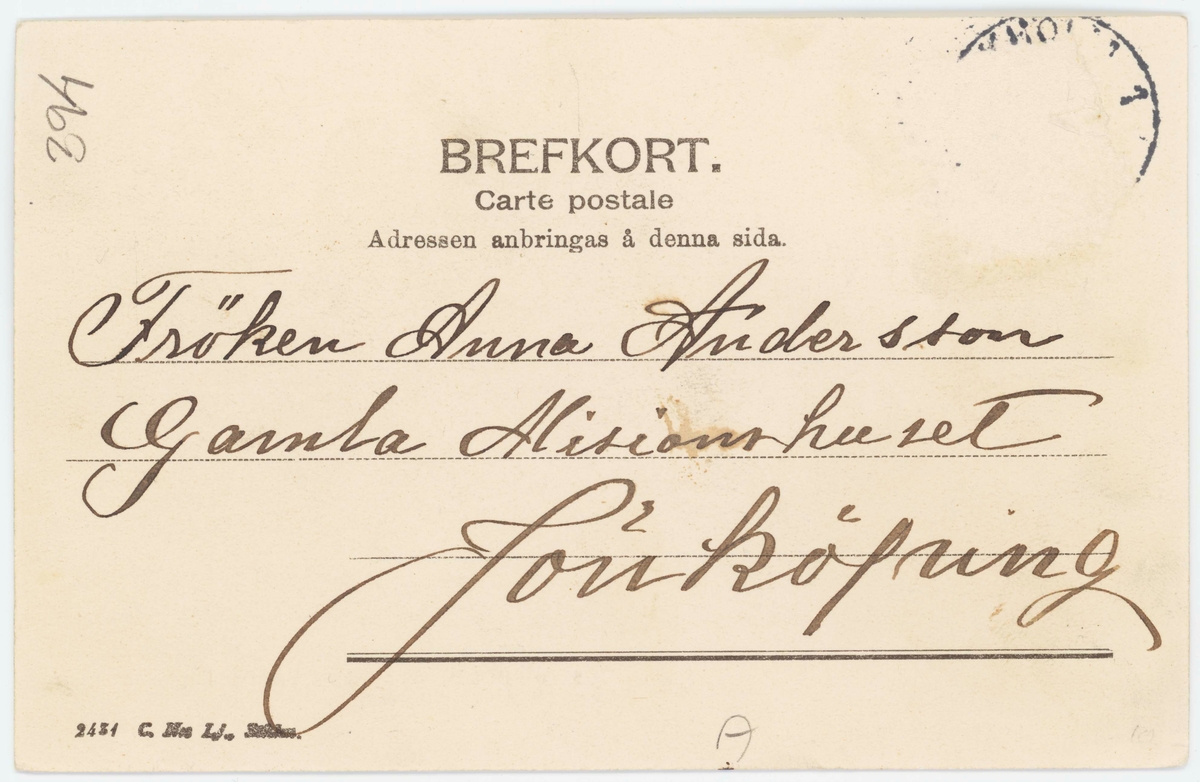 394
BREFKORT.
Carte postale
Adressen anbringas å denna sida.
Fröken Anna Andersson
Gamla Misionshuset
Jönköping
2431 C. N:s Lj.,
A